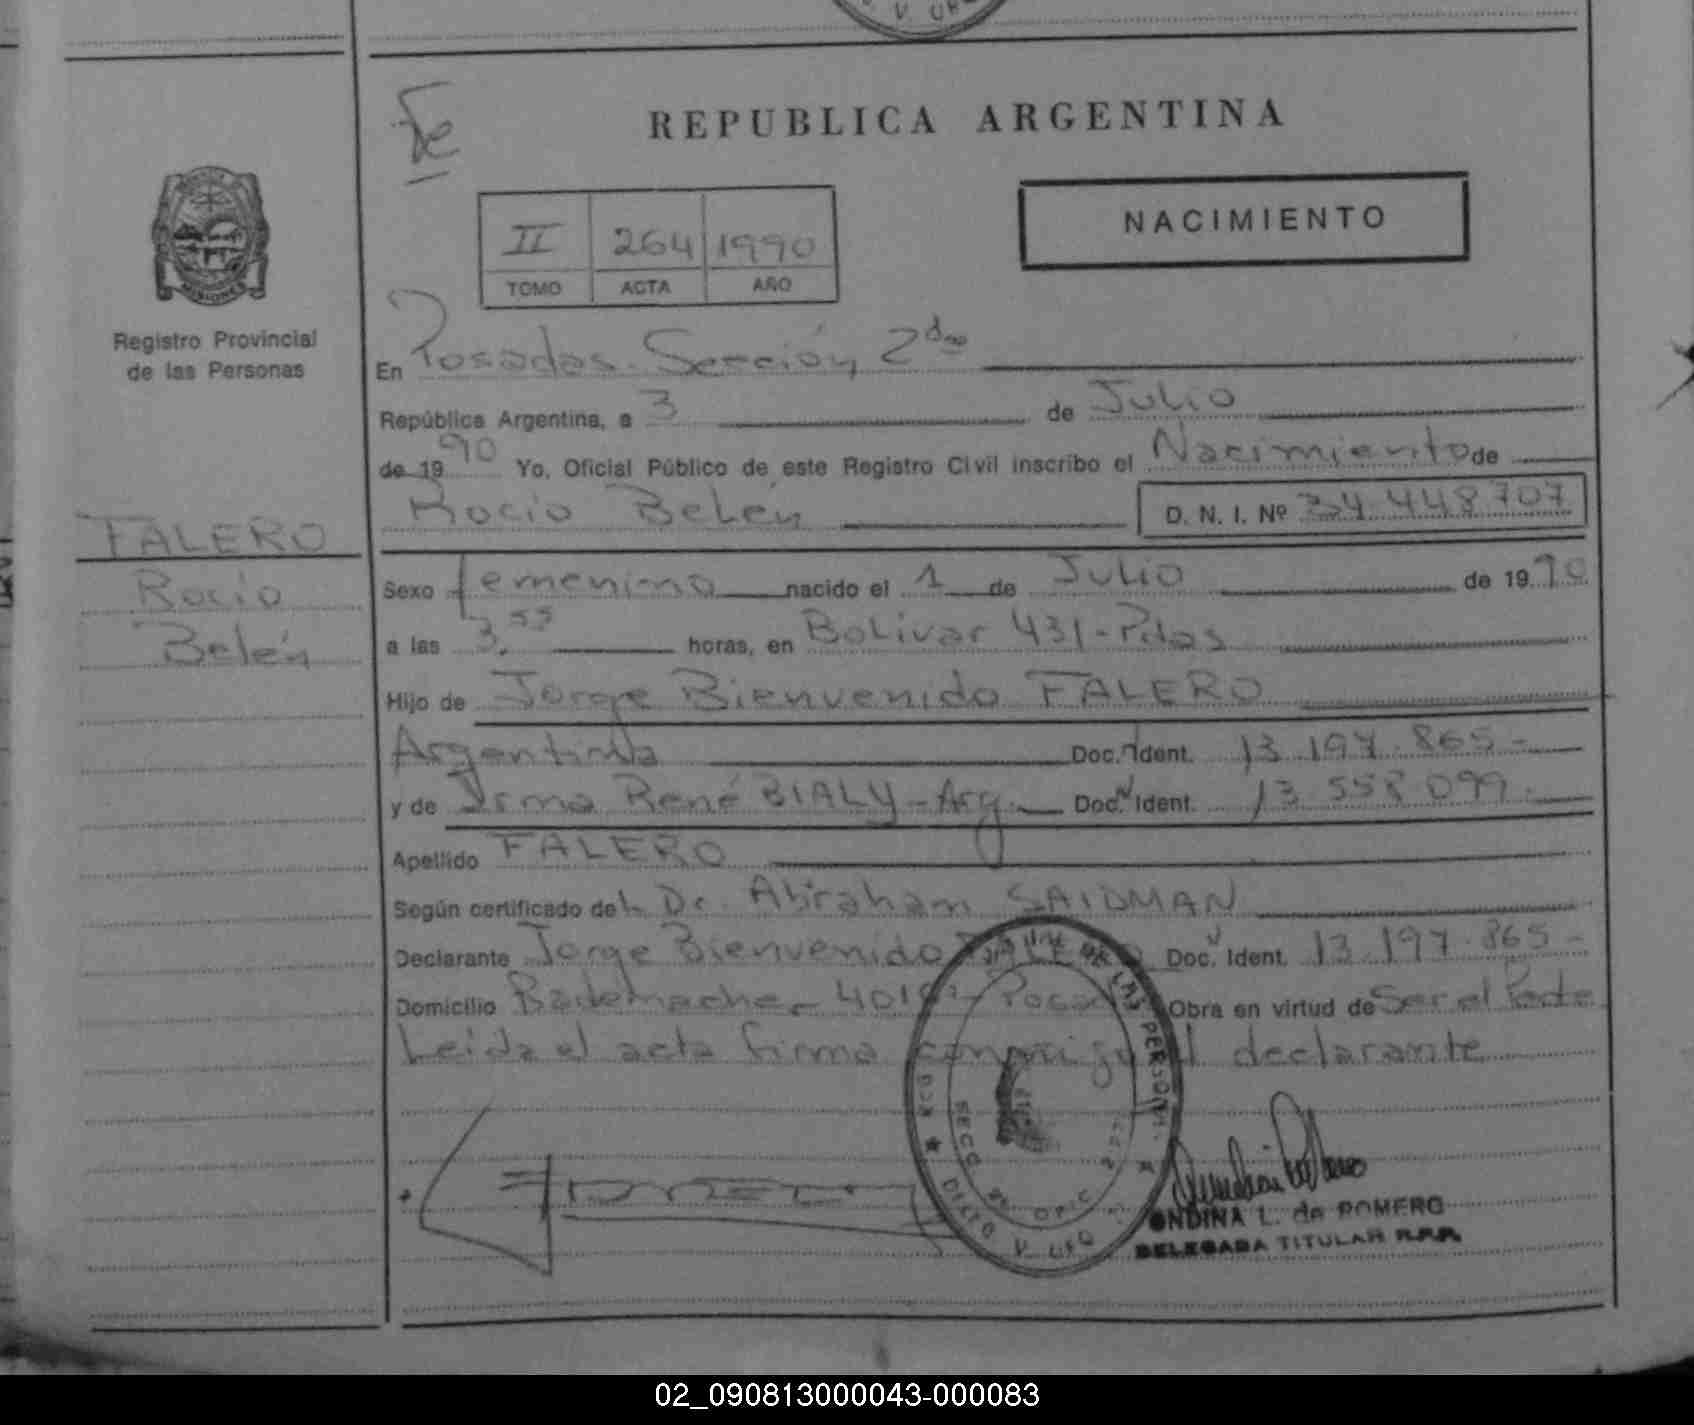 V. URG
Fe
REPUBLICA ARGENTINA
NACIMIENTO
II 264 1990
TOMO ACTA AÑO
MISIONES
Registro Provincial
de las Personas
En Posadas. Sección 2da
República Argentina, a 3 de Julio
de 1990 Yo, Oficial Público de este Registro Civil inscribo el Nacimiento de
Rocio Belén D. N. I. Nº 34.448.707
FALERO
Rocio
Belén
Sexo femenino nacido el 1 de Julio de 1990
a las 3.55 horas, en Bolivar 431-Pdas
Hijo de Jorge Bienvenido FALERO
Argentina Doc. Ident. 13.197.865-
y de Irma René BIALY-Arg. Doc. Ident. 13.558.099.
Apellido FALERO
Según certificado del Dr. Abraham SAIDMAN
Declarante Jorge Bienvenido FALERO Doc. Ident. 13.197.865-
Domicilio 4019- Posadas Obra en virtud de Ser el Padre
Leida el acta firma conmigo el declarante
DE LAS PERSONAS
ONDINA L. de ROMERO
DELEGADA TITULAR R.P.P.
02_090813000043-000083